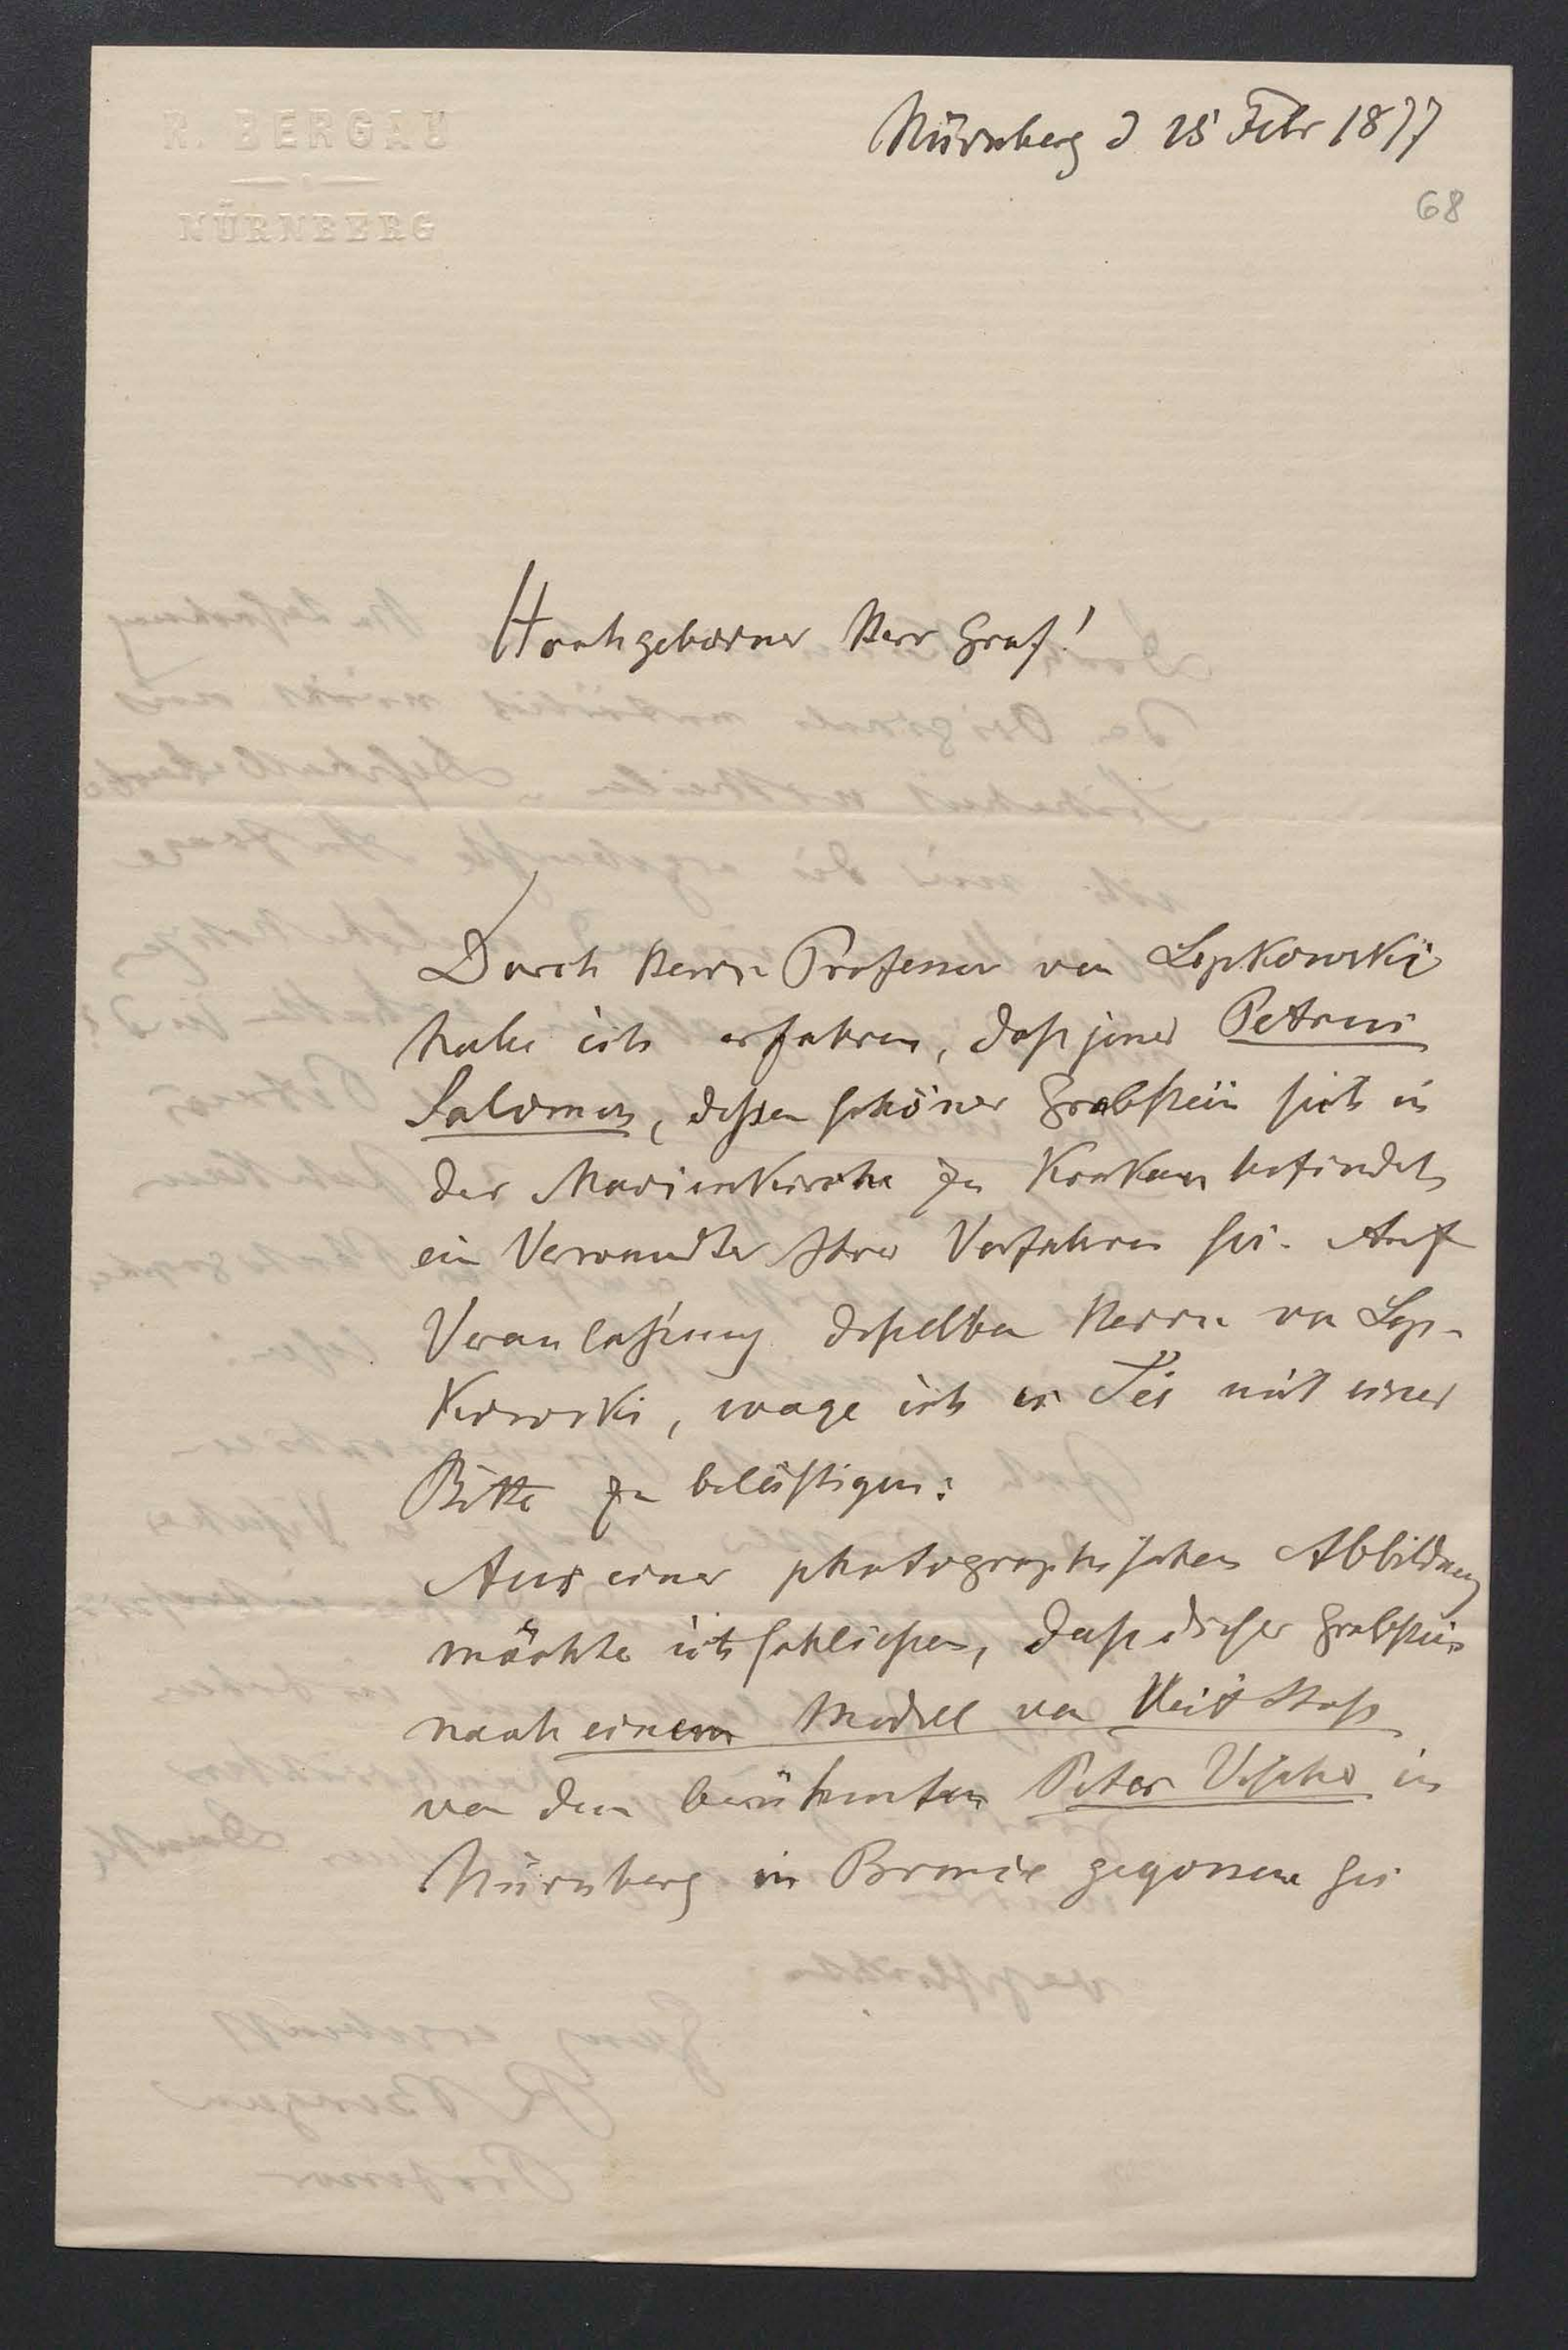 R. BERGAU
NÜRNBERG
Nürnberg d 25 Febr 1877
68
Hochgeborner Herr Graf!
Durch Herrn Professor von Lepkowski
habe ich erfahren, daß jener Petrus
Salomon, dessen schöner Grabstein sich in
der Marienkirche zu Krakau befindet,
ein Verwandter Ihrer Vorfahren sei. Auf
Veranlaßung desselben Herrn von Lep-
kowski, wage ich es Sie mit einer
Bitte zu belästigen:
Aus einer photographischen Abbildung
möchte ich schließen, daß dieser Grabstein
nach einem Modell von Veit Stoß
von dem berühmten Peter Vischer in
Nürnberg in Bronce gegossen sei